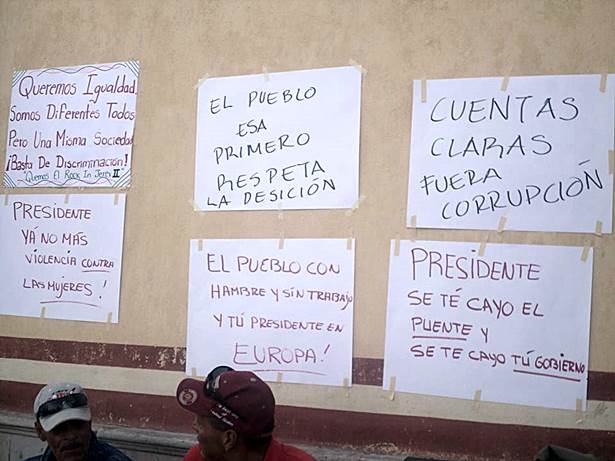 Queremos Igualdad,
Somos Diferentes Todos
Pero Una Misma Sociedad
¡Basta De Discriminación!
"Quemos El Rock In Jerez II
EL PUEBLO
ESA
PRIMERO
RESPETA
LA DESICIÓN
CUENTAS
CLARAS
FUERA
CORRUPCIÓN
PRESIDENTE
YÁ NO MÁS
VIOLENCIA CONTRA
LAS MUJERES!
EL PUEBLO CON
HAMBRE Y SIN TRABAJO
Y TÚ PRESIDENTE EN
EUROPA!
PRESIDENTE
SE TÉ CAYO EL
PUENTE Y
SE TE CAYO TÚ GOBIERNO